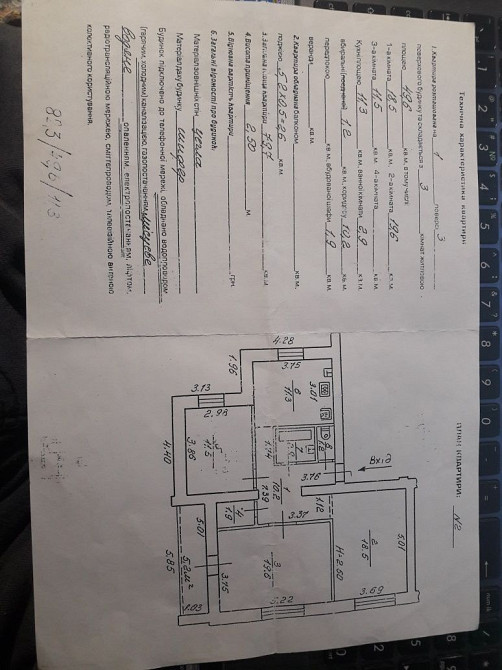 Технічна характеристика квартири
1. Квартира розташована на 1 поверсі 3
поверхового будинку та складається з 3 кімнат житловою
площею 49,6 кв.м, в тому числі:
1-а кімната 18,5 кв.м. 2-а кімната 19,6 кв.м.
3-а кімната 11,5 кв.м. 4-а кімната кв.м.
Кухні площею 11,3 кв.м, ванної кімнати 2,9 кв.м
вбиральні 1,2 кв.м, коридору 10,2 кв.м.
передпокою кв.м, вбудованої шафи 1,9 кв.м.
веранди кв.м.
2. Квартира обладнана балконом
лоджією 5,2 кв.м
3. Загальна площа квартири кв.м
4. Висота приміщення 2,60 м
5. Відносна вартість квартири грн.
6. Загальні відомості про будинок:
Матеріал зовнішніх стін цегла
Матеріал даху будинку шифер
Будинок підключено до телефонної мережі, обладнано водопроводом
(гарячим, холодним) каналізацією, газопостачанням
опаленням, електропостачанням, ліфтом,
радіотрансляційною мережею, сміттєпроводом, телевізійною антеною
колективного користування.
ПЛАН КВАРТИРИ N2
Вхід
4.28
3.15
6
11.3
3.01
1.96
3.13
2.98
3.86
11.5
4.40
1.14
7
3.76
1
10.2
1.39
4
1.9
3.37
1.12
2
18.5
5.01
H=2.60
3.69
3
19.6
3.15
5.22
5.01
5.2 м²
5.85
1.03